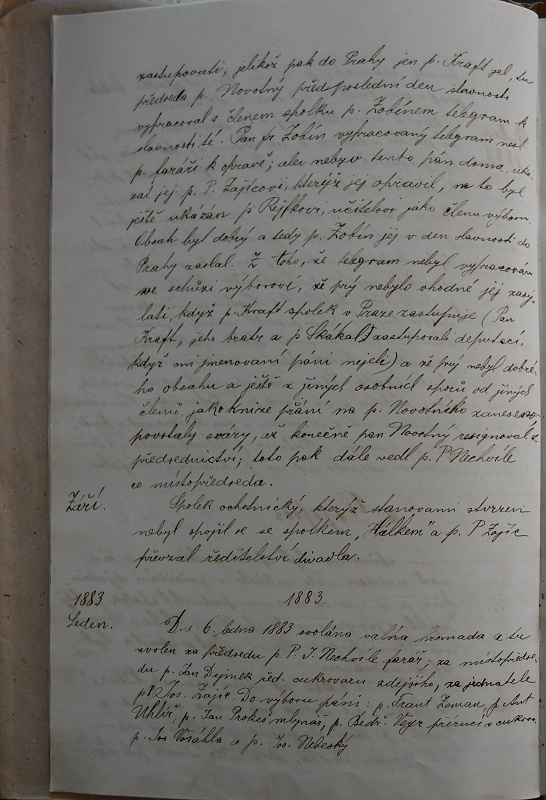 zastupovati, jelikož pak do Prahy jen p. Kraft jel, tu
předseda p. Novotný před poslední den slavnosti
vypracoval s členem spolku p. Zobínem telegram k
slavnosti té. Pan Zobín vypracovaný telegram nesl
p. faráři k opravě; aler nebyv tento pán doma, uká
zal jej p. P. Zajícovi, kterýž jej opravil, na to byl
ještě ukázán p. Rejfkovi, učitelovi jako členu výboru
Obsah byl dobrý a tedy p. Zobín jej v den slavnosti do
Prahy zaslal. Z toho, že telegram nebyl vypracován
ve schůzi výborové, že prý nebylo vhodné jej zasý-
lati, když p. Kraft spolek v Praze zastupuje (Pan
Kraft, jeho bratr a p. Skákal zastupovali deputaci,
když oni jmenovaní páni nejeli) a že prý nebyl dobré-
ho obsahu a ještě z jiných osobních sporů od jiných
členů, jakož přání na p. Novotného
povstaly sváry, až konečně pan Novotný resignoval s
předsednictví; toto pak dále vedl p. P. Nechvíle
co místopředseda.
Září. Spolek ochotnický, kterýž stanovami stvrzen
nebyl spojil se se spolkem „Hálkem" a p. P. Zajíc
převzal ředitelství divadla.
1883 1883.
Leden. Dne 6. ledna 1883 svolána valná hromada a tu
zvolen za předsedu p. P. J. Nechvíle farář; za místopředse-
du p. Jan Dymek řed. cukrovaru zdejšího, za jednatele
p. P. Jos. Zajíc. Do výboru páni: p. Frant. Zeman, p. Ant.
Uhlíř, p. Jan Prokeš mlynář, p. Bedř. Veyr příručí v cukrov.
p. Jos. Vosáhla a p. Jos. Nebeský